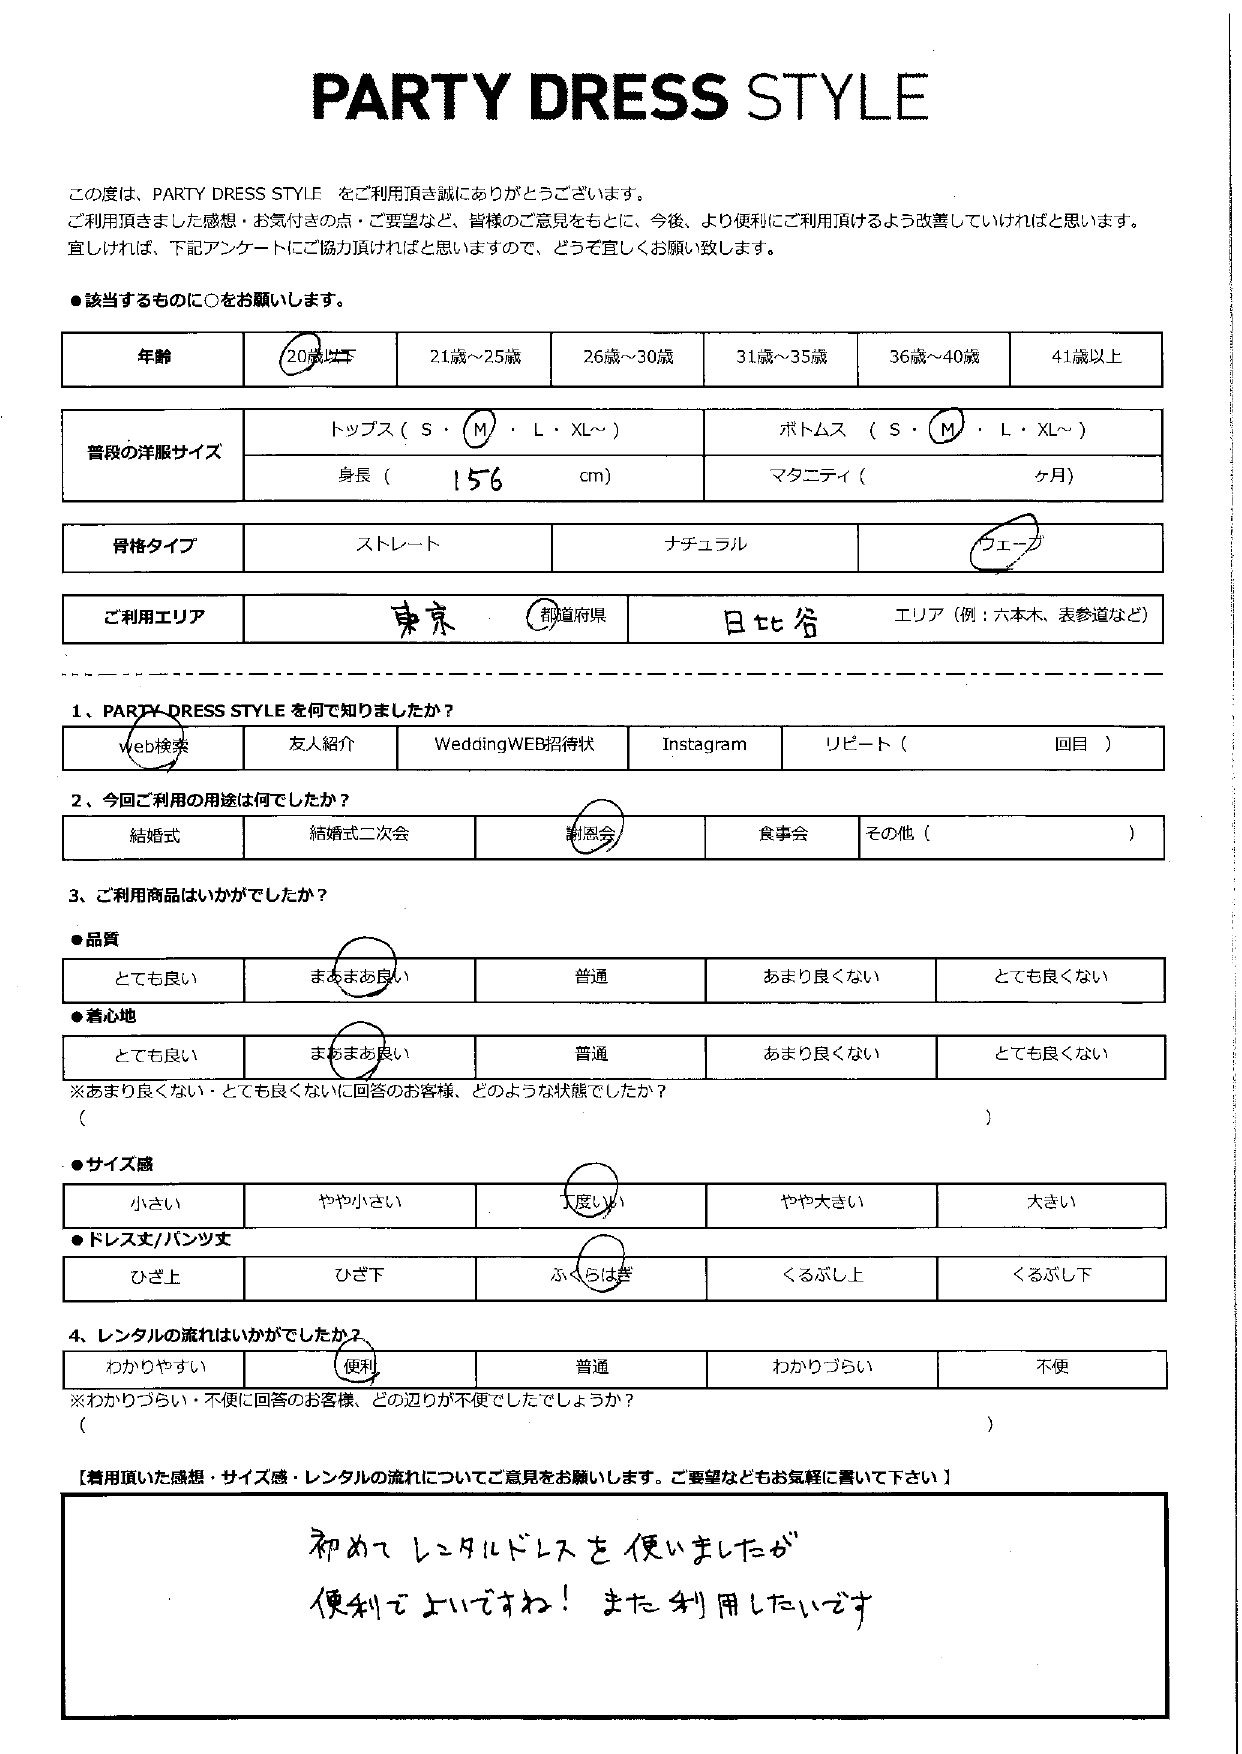 PARTY DRESS STYLE
この度は、PARTY DRESS STYLE をご利用頂き誠にありがとうございます。
ご利用頂きました感想・お気付きの点・ご要望など、皆様のご意見をもとに、今後、より便利にご利用頂けるよう改善していければと思います。
宜しければ、下記アンケートにご協力頂ければと思いますので、どうぞ宜しくお願い致します。
●該当するものに○をお願いします。
年齢 20歳以下 21歳～25歳 26歳～30歳 31歳～35歳 36歳～40歳 41歳以上
普段の洋服サイズ トップス ( S ・ M ・ L ・ XL～ ) ボトムス ( S ・ M ・ L ・ XL～ )
身長 ( 156 cm) マタニティ ( ヶ月)
骨格タイプ ストレート ナチュラル ウェーブ
ご利用エリア 東京 都道府県 日比谷 エリア (例：六本木、表参道など)
1、PARTY DRESS STYLE を何で知りましたか？
web検索 友人紹介 WeddingWEB招待状 Instagram リピート ( 回目 )
2、今回ご利用の用途は何でしたか？
結婚式 結婚式二次会 謝恩会 食事会 その他 ( )
3、ご利用商品はいかがでしたか？
●品質
とても良い まあまあ良い 普通 あまり良くない とても良くない
●着心地
とても良い まあまあ良い 普通 あまり良くない とても良くない
※あまり良くない・とても良くないに回答のお客様、どのような状態でしたか？
( )
●サイズ感
小さい やや小さい 丁度いい やや大きい 大きい
●ドレス丈/パンツ丈
ひざ上 ひざ下 ふくらはぎ くるぶし上 くるぶし下
4、レンタルの流れはいかがでしたか？
わかりやすい 便利 普通 わかりづらい 不便
※わかりづらい・不便に回答のお客様、どの辺りが不便でしたでしょうか？
( )
【着用頂いた感想・サイズ感・レンタルの流れについてご意見をお願いします。ご要望などもお気軽に書いて下さい 】
初めて レンタルドレスを 使いましたが
便利で よいですね！ また 利用したいです